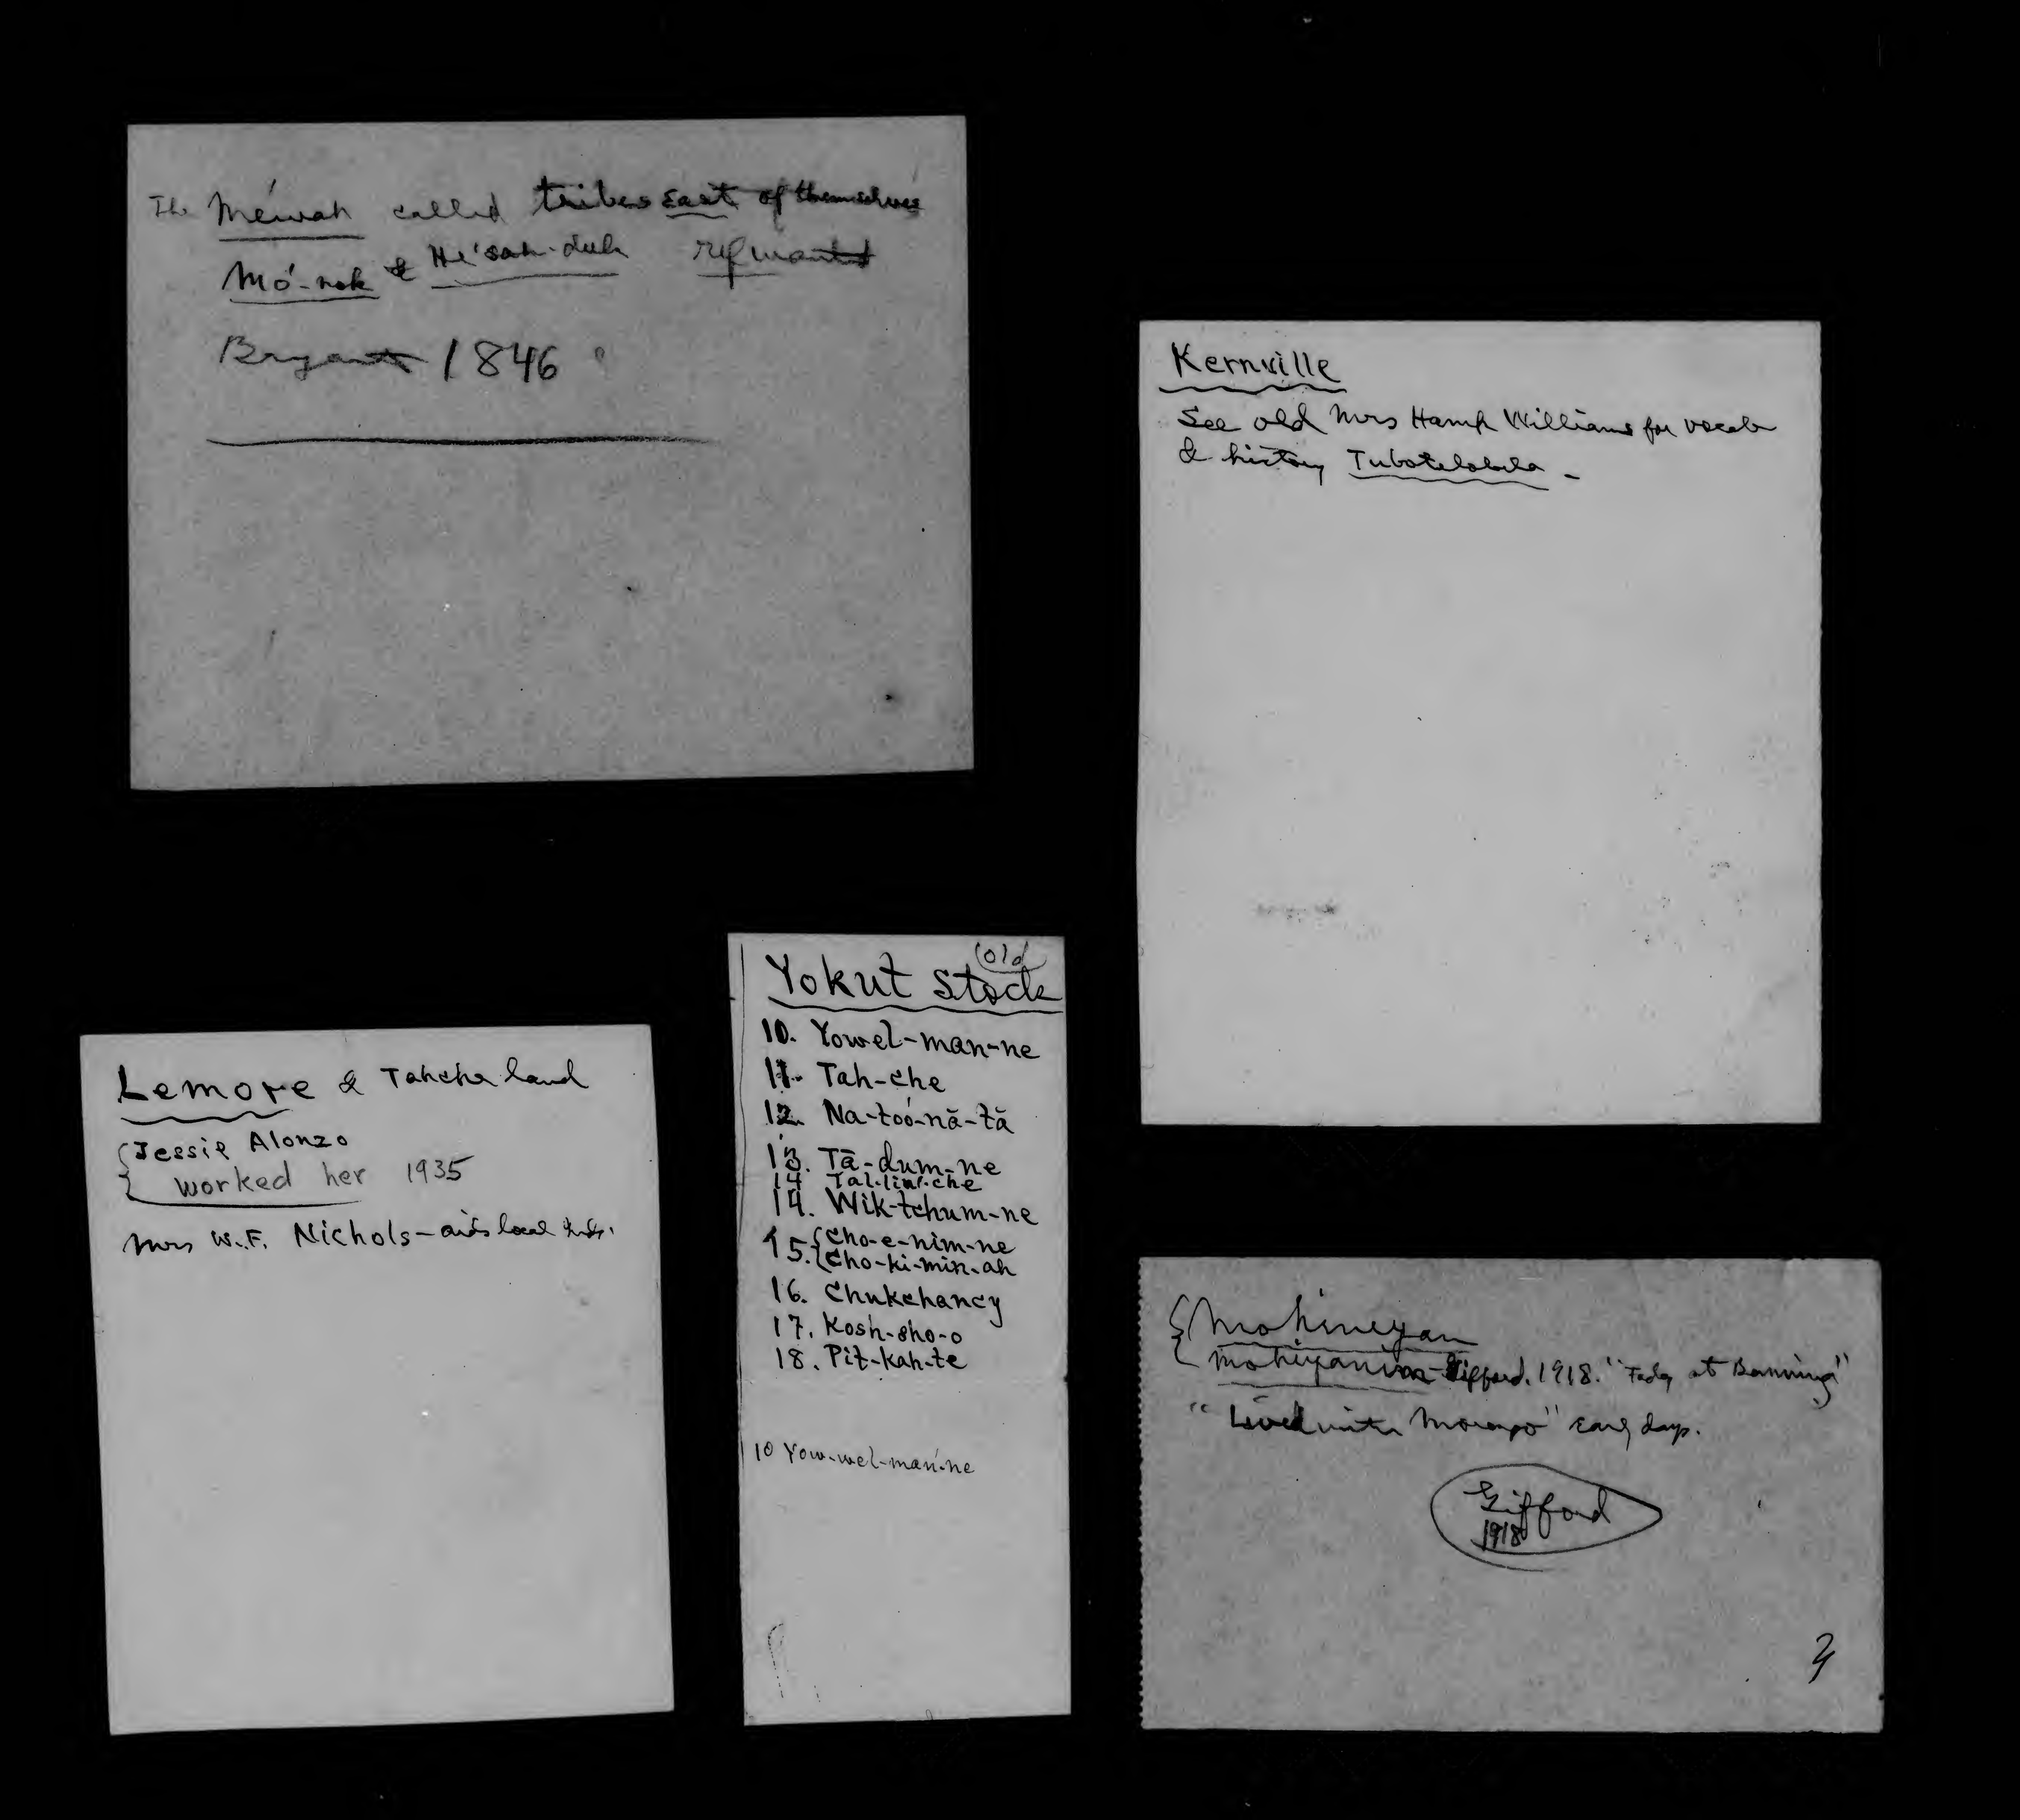 The Mé́wah called tribes East of themselves
Mó-nok & He'sah-duh
Bryant 1846
Kernville
See old Mrs Hamp Williams for vocab
& history Tubotelobela -
Lemore & Tahche land
Jessie Alonzo
worked her 1935
Mrs W.F. Nichols - aids local Inds.
(old)
Yokut Stock
10. Yowel-man-ne
11. Tah-che
12. Na-toó-nă-tă
13. Tā-dum-ne
14 Tal-lin'-che
14. Wik-tchum-ne
15. {Cho-e-nim-ne
{Cho-ki-min-ah
16. Chukchancy
17. Kosh-sho-o
18. Pit-kah-te
10 Yow-wel-man'-ne
{Mohineyan
Mohiyanim - Gifford. 1918. "Today at Banning"
"Lived with Morongo" early days.
Gifford
1918
3